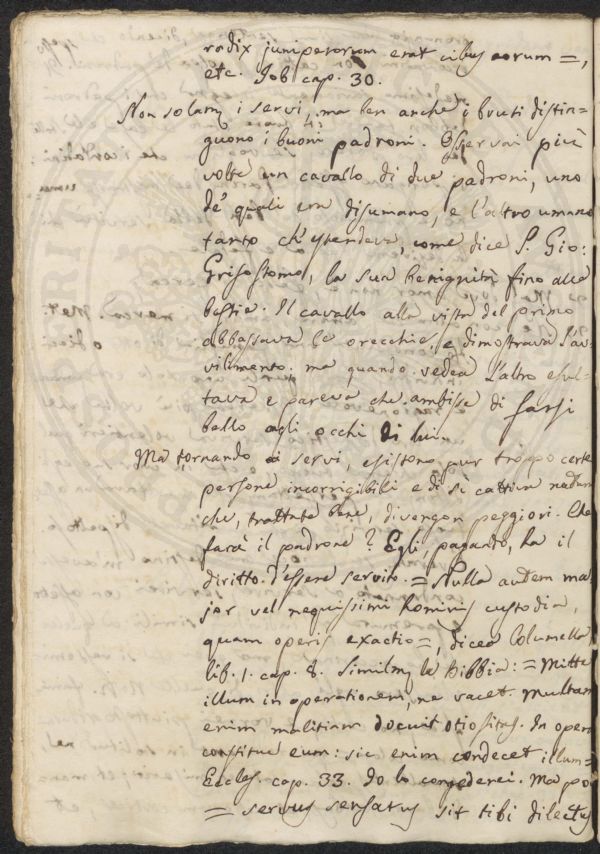 radix juniperorum erat cibus eorum =,
etc. Job cap. 30.
Non solamẽ i servi, ma ben anche i bruti distin=
guono i buoni padroni. Osservai più
volte un cavallo di due padroni, uno
de' quali era disumano, e l'altro umano
tanto ch'estendeva, come dice S. Gio:
Grisostomo, la sua benignità fino alle
bestie. Il cavallo alla vista del primo
abbassava le orecchie, e dimostrava l'av=
vilimento. ma quando vedea l'altro esul=
tava e pareva che ambisse di farsi
bello agli occhi di lui.
Ma tornando ai servi, esistono pur troppo certe
persone incorrigibili e di sì cattiva natura
che, trattate bene, divengon peggiori. Che
farà il padrone? Egli, pagando, ha il
diritto d'essere servito. = Nulla autem ma
jor vel nequissimi hominis custodia,
quam operis exactio =, dicea Columella
lib. 1. cap. 8. Similmẽ la Bibbia: = Mitte
illum in operationem, ne vacet. Multam
enim malitiam docuit otiositas. In opera
constitue eum: sic enim condecet illum =
Eccles. cap. 33. Io lo concederei. Ma poi
= servus sensatus sit tibi dilectus